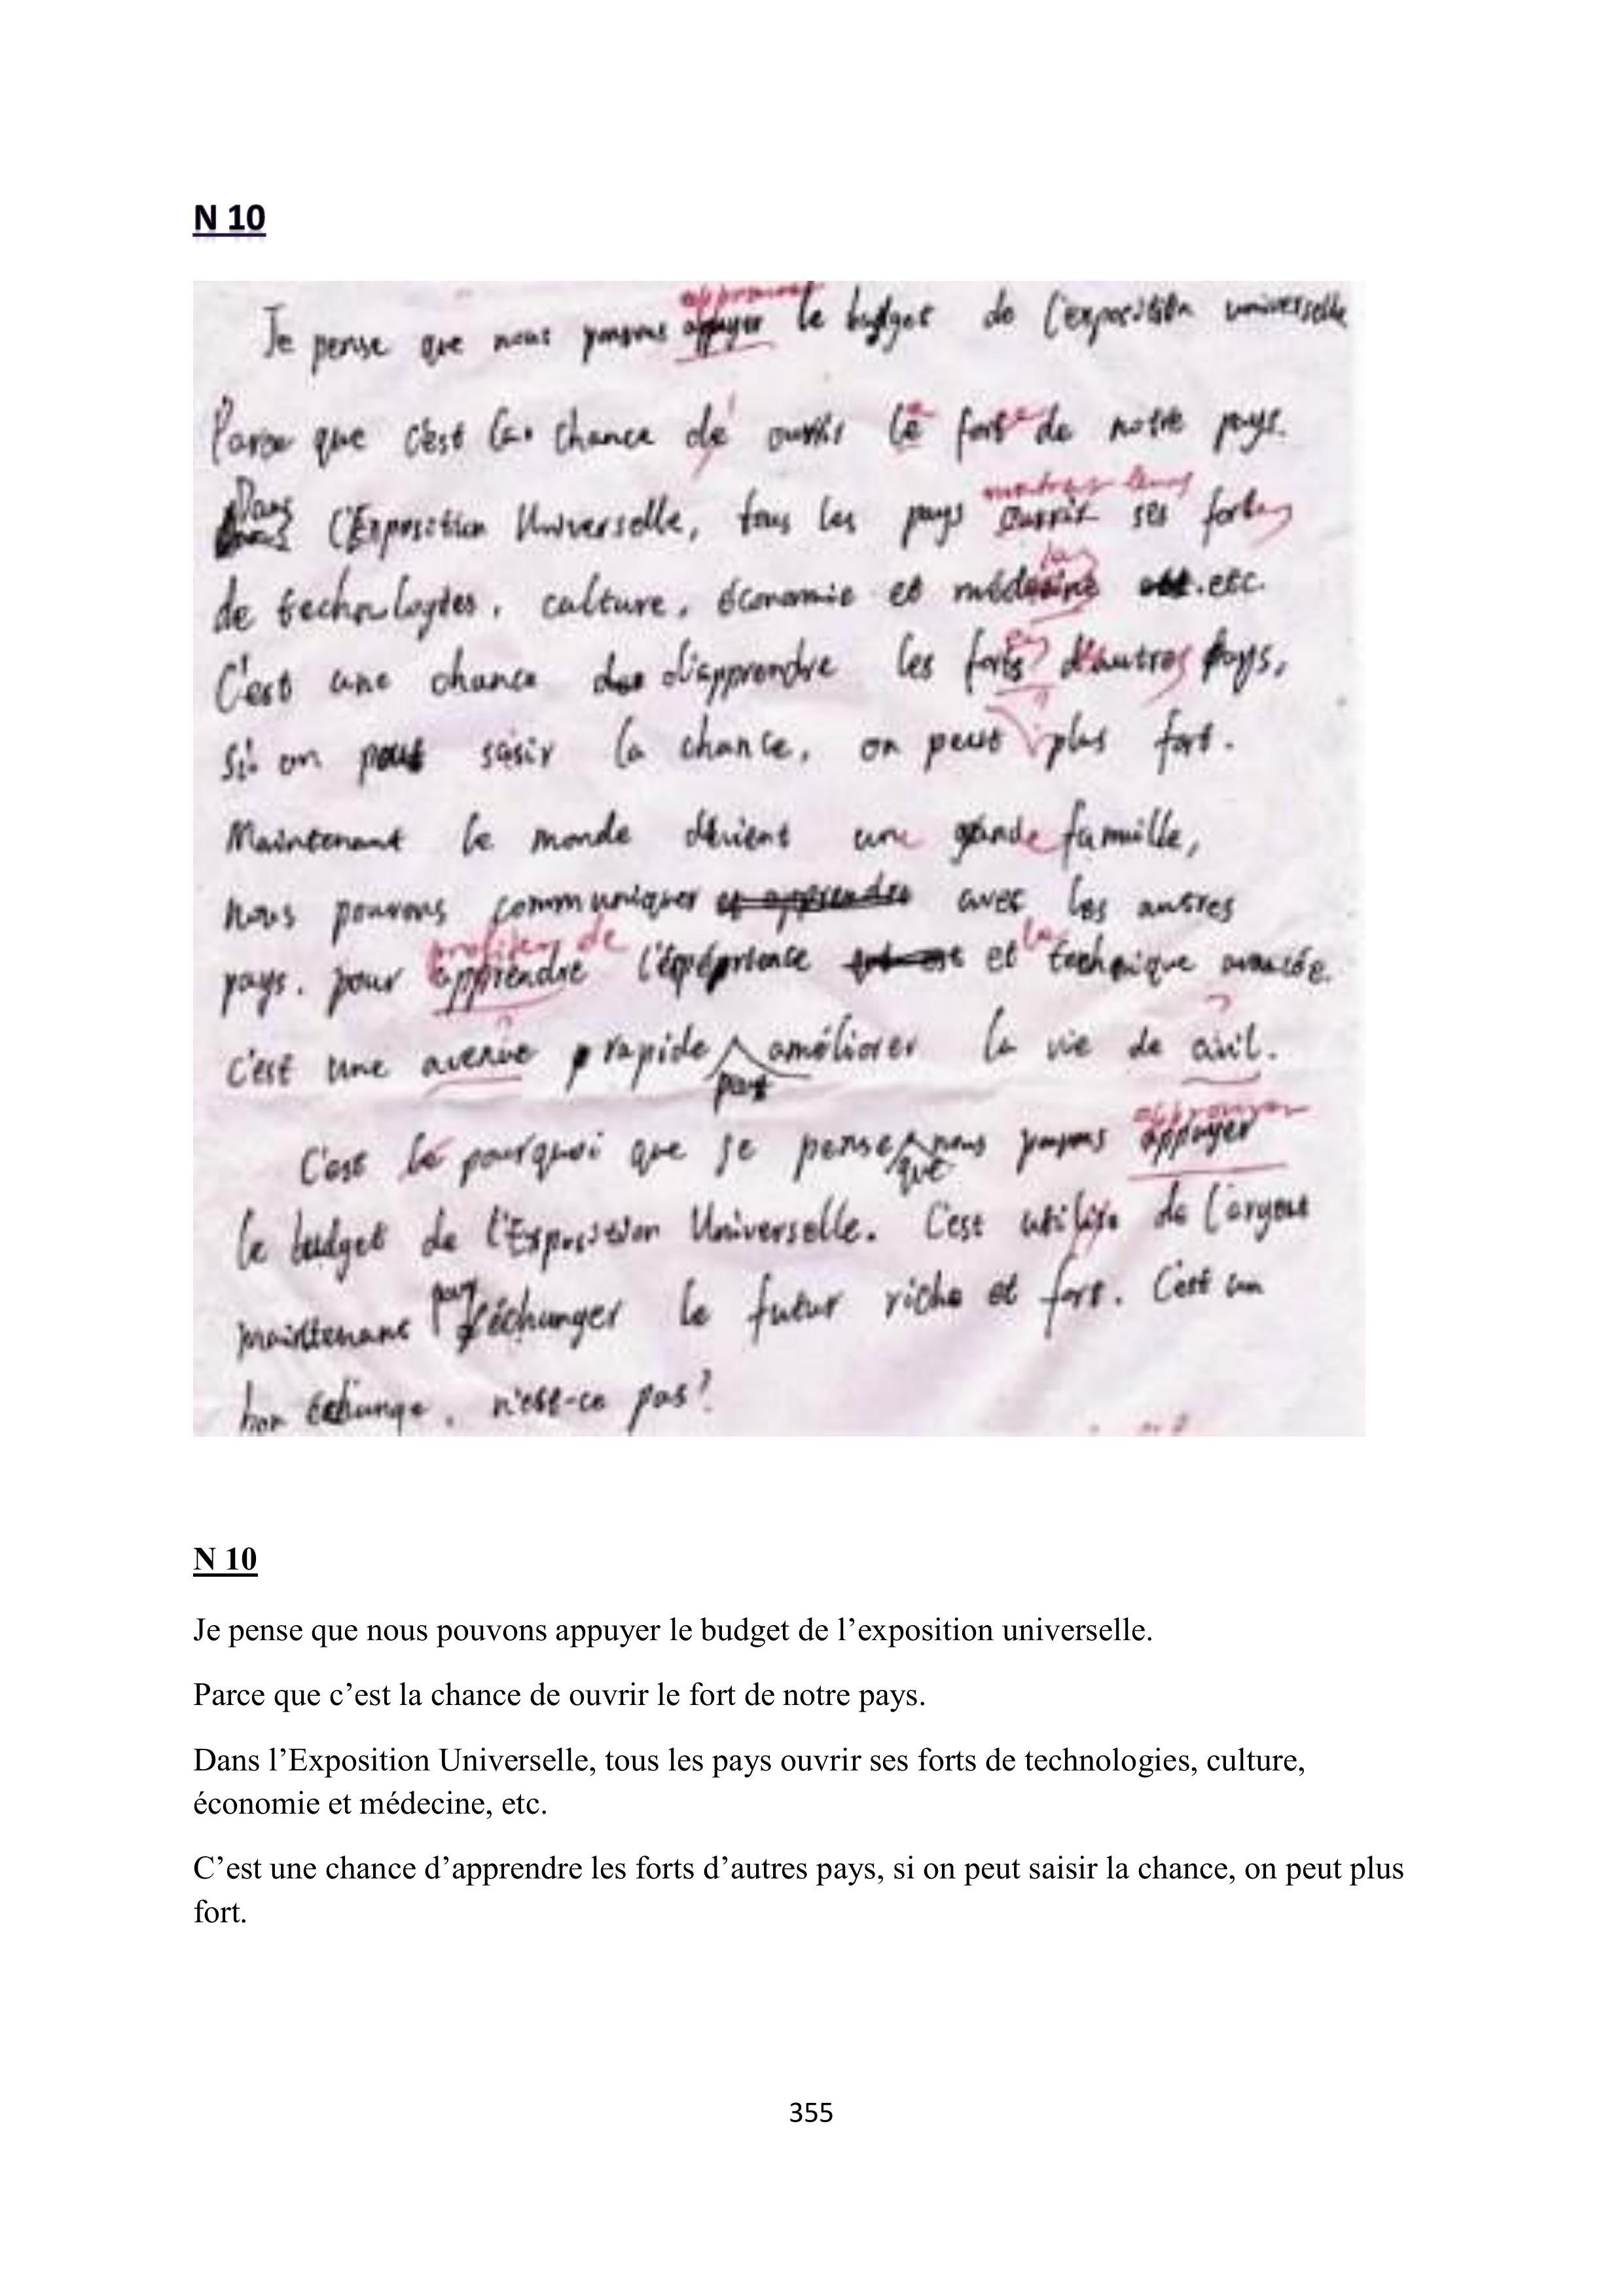 N 10
approuver
Je pense que nous pouvons appuyer le budget de l'exposition universelle
Parce que c'est la chance de ouvrir le fort de notre pays.
montrer leurs
Dans l'Exposition Universelle, tous les pays ouvrir ses forts
de technologies, culture, économie et médecine etc.
C'est une chance d'apprendre les forts d'autres pays,
si on peut saisir la chance, on peut plus fort.
Maintenant le monde dévient une grande famille,
nous pouvons communiquer et apprendre avec les autres
profiter de la
pays. pour apprendre l'expérience et technique avancée.
c'est une avenue rapide améliorer la vie de civil.
pour
approuver
C'est lé pourquoi que je pense nous pouvons appuyer
que
le budget de l'Exposition Universelle. C'est utilise de l'argent
pour
maintenant échanger le futur riche et fort. C'est un
bon échange, n'est-ce pas?
N 10
Je pense que nous pouvons appuyer le budget de l’exposition universelle.
Parce que c’est la chance de ouvrir le fort de notre pays.
Dans l’Exposition Universelle, tous les pays ouvrir ses forts de technologies, culture,
économie et médecine, etc.
C’est une chance d’apprendre les forts d’autres pays, si on peut saisir la chance, on peut plus
fort.
355